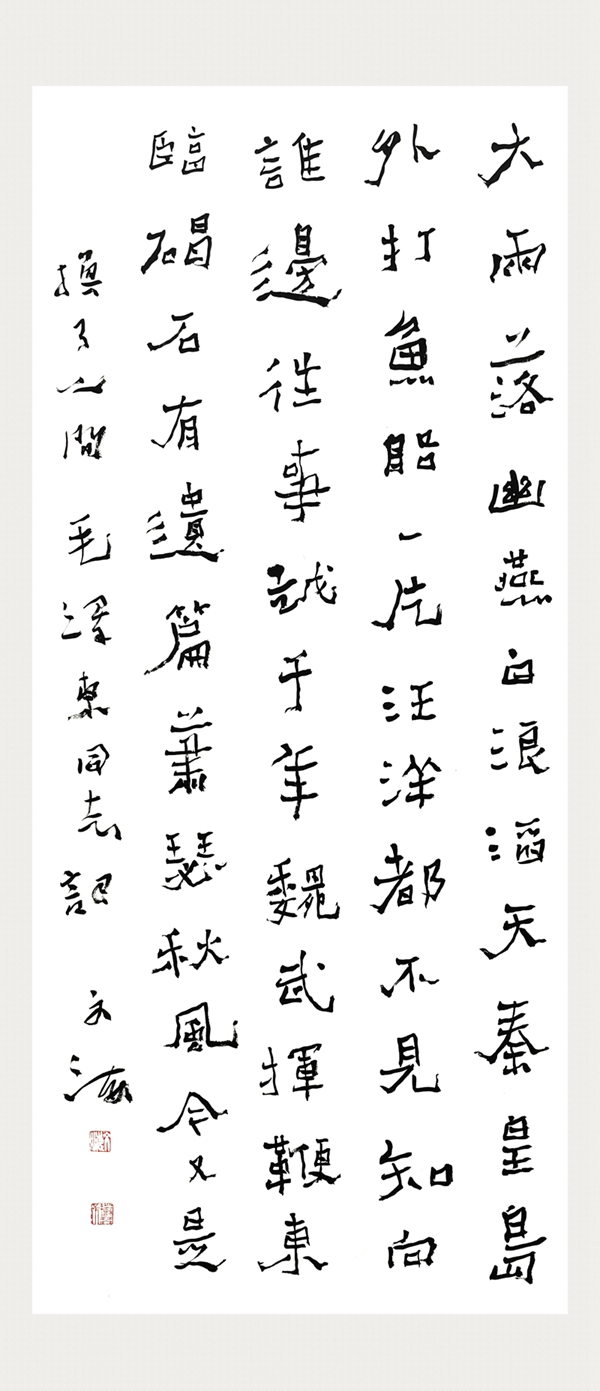 大雨落幽燕白浪滔天秦皇島
外打魚船一片汪洋都不見知向
誰邊往事越千年魏武揮鞭東
臨碣石有遺篇蕭瑟秋風今又是
換了人間 毛澤東同志詞 文海